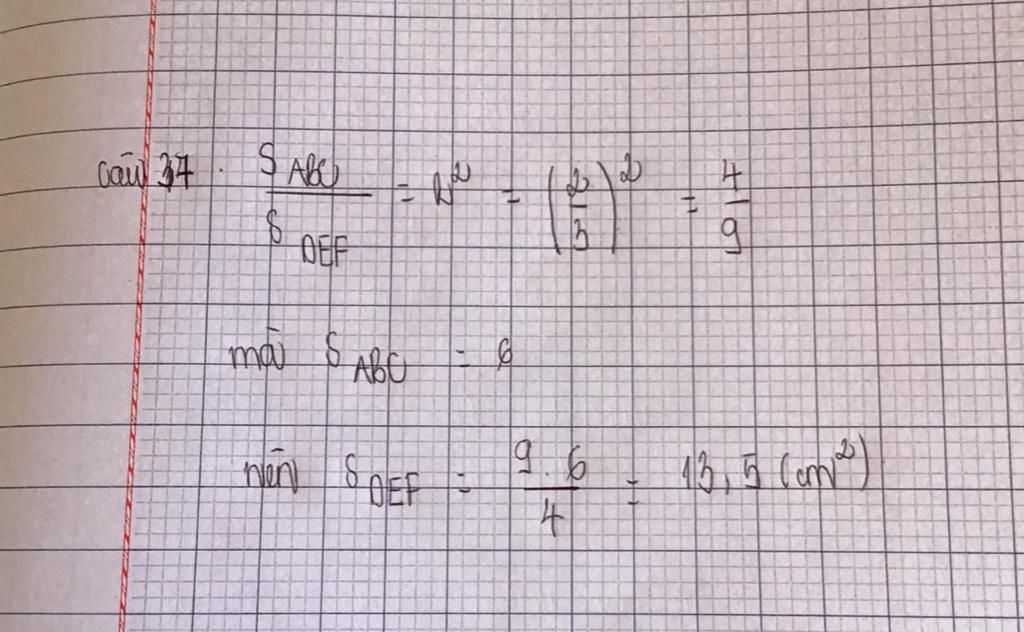 Câu 37. S_ABC / S_DEF = k² = (2/3)² = 4/9
mà S_ABC = 6
nên S_DEF = 9.6 / 4 = 13,5 (cm²)